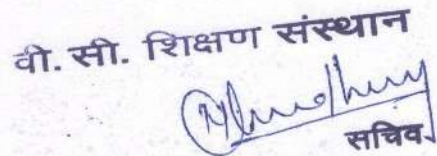 वी. सी. शिक्षण संस्थान
सचिव